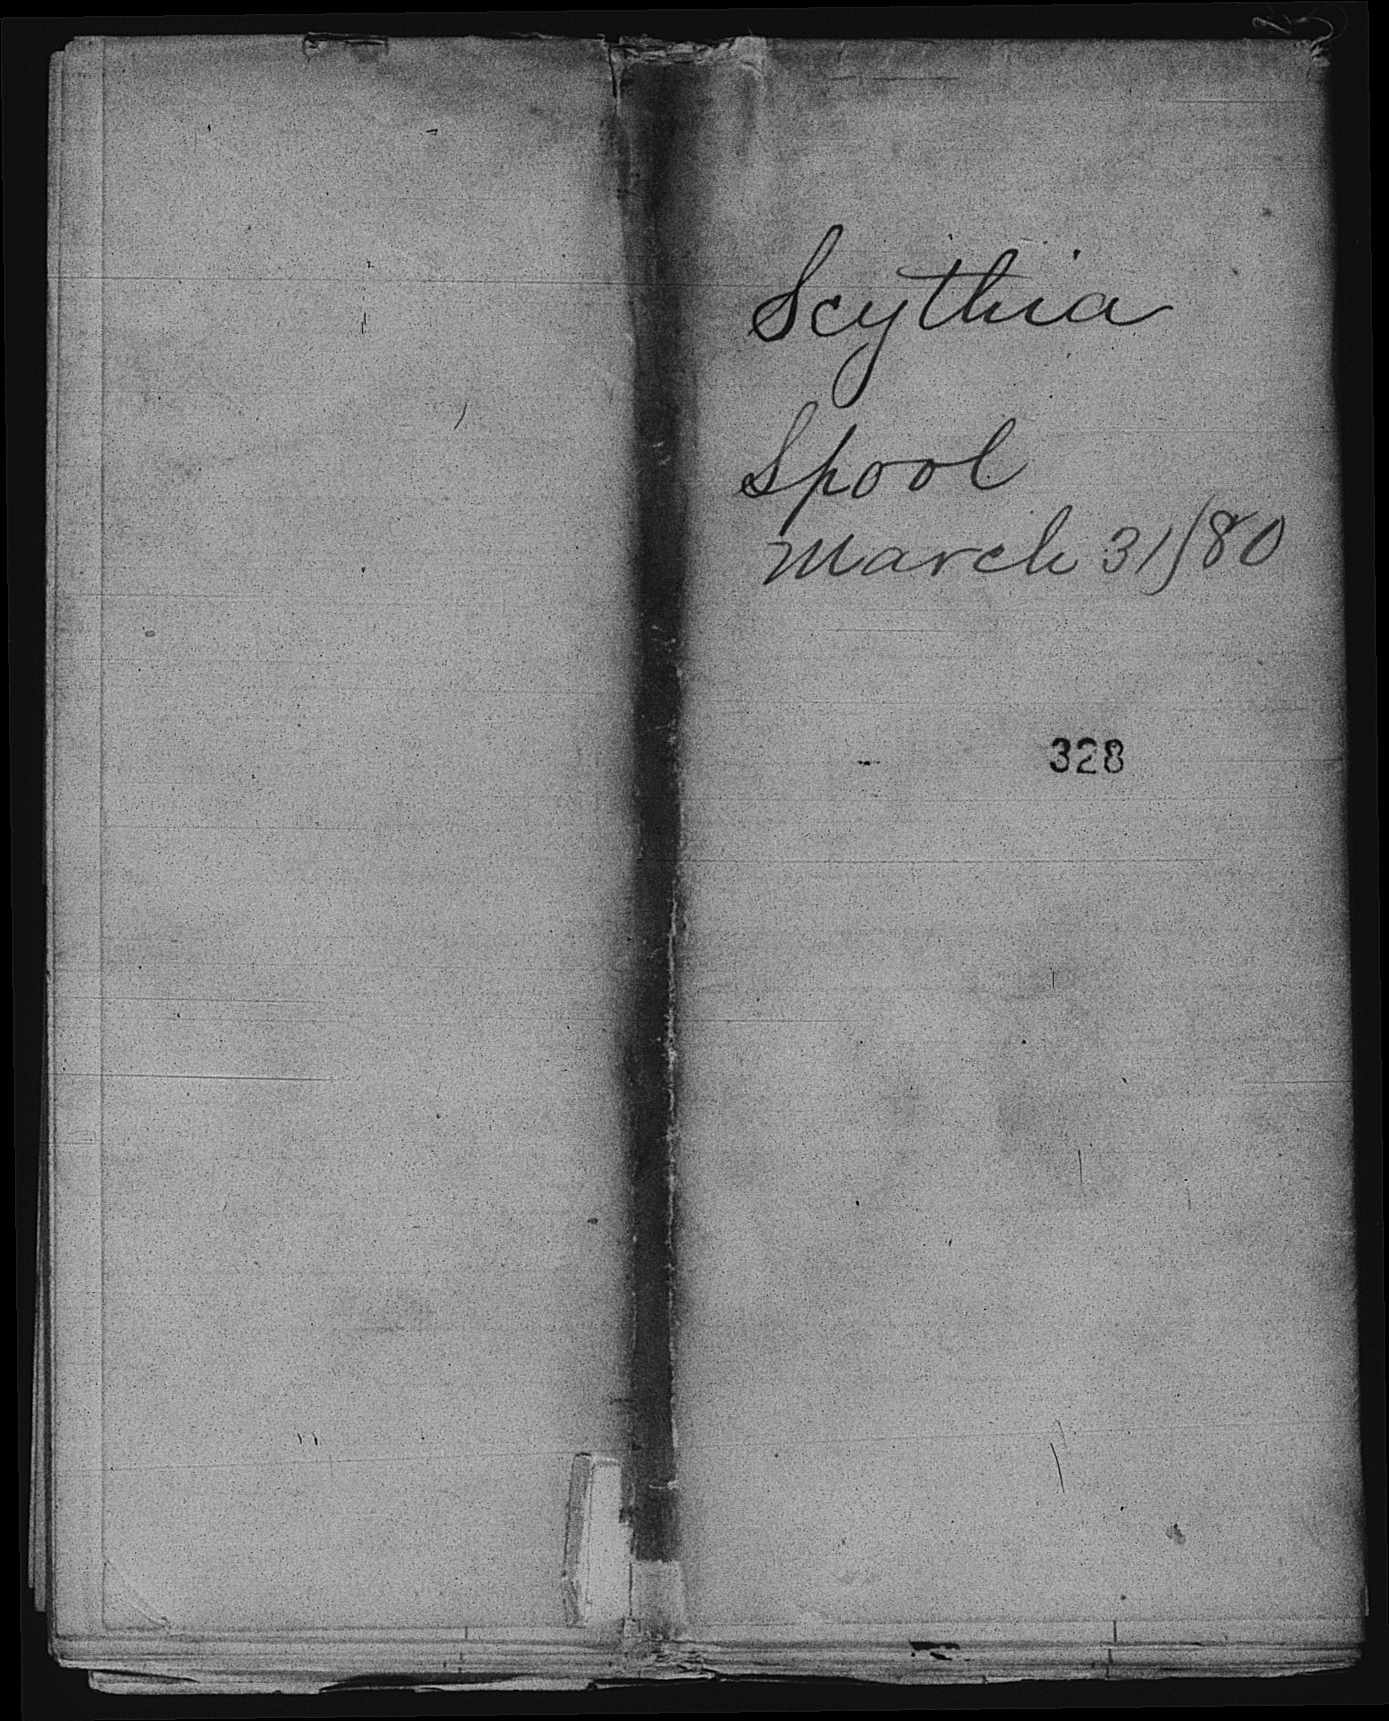 Scythia
Spool
March 31/80
328